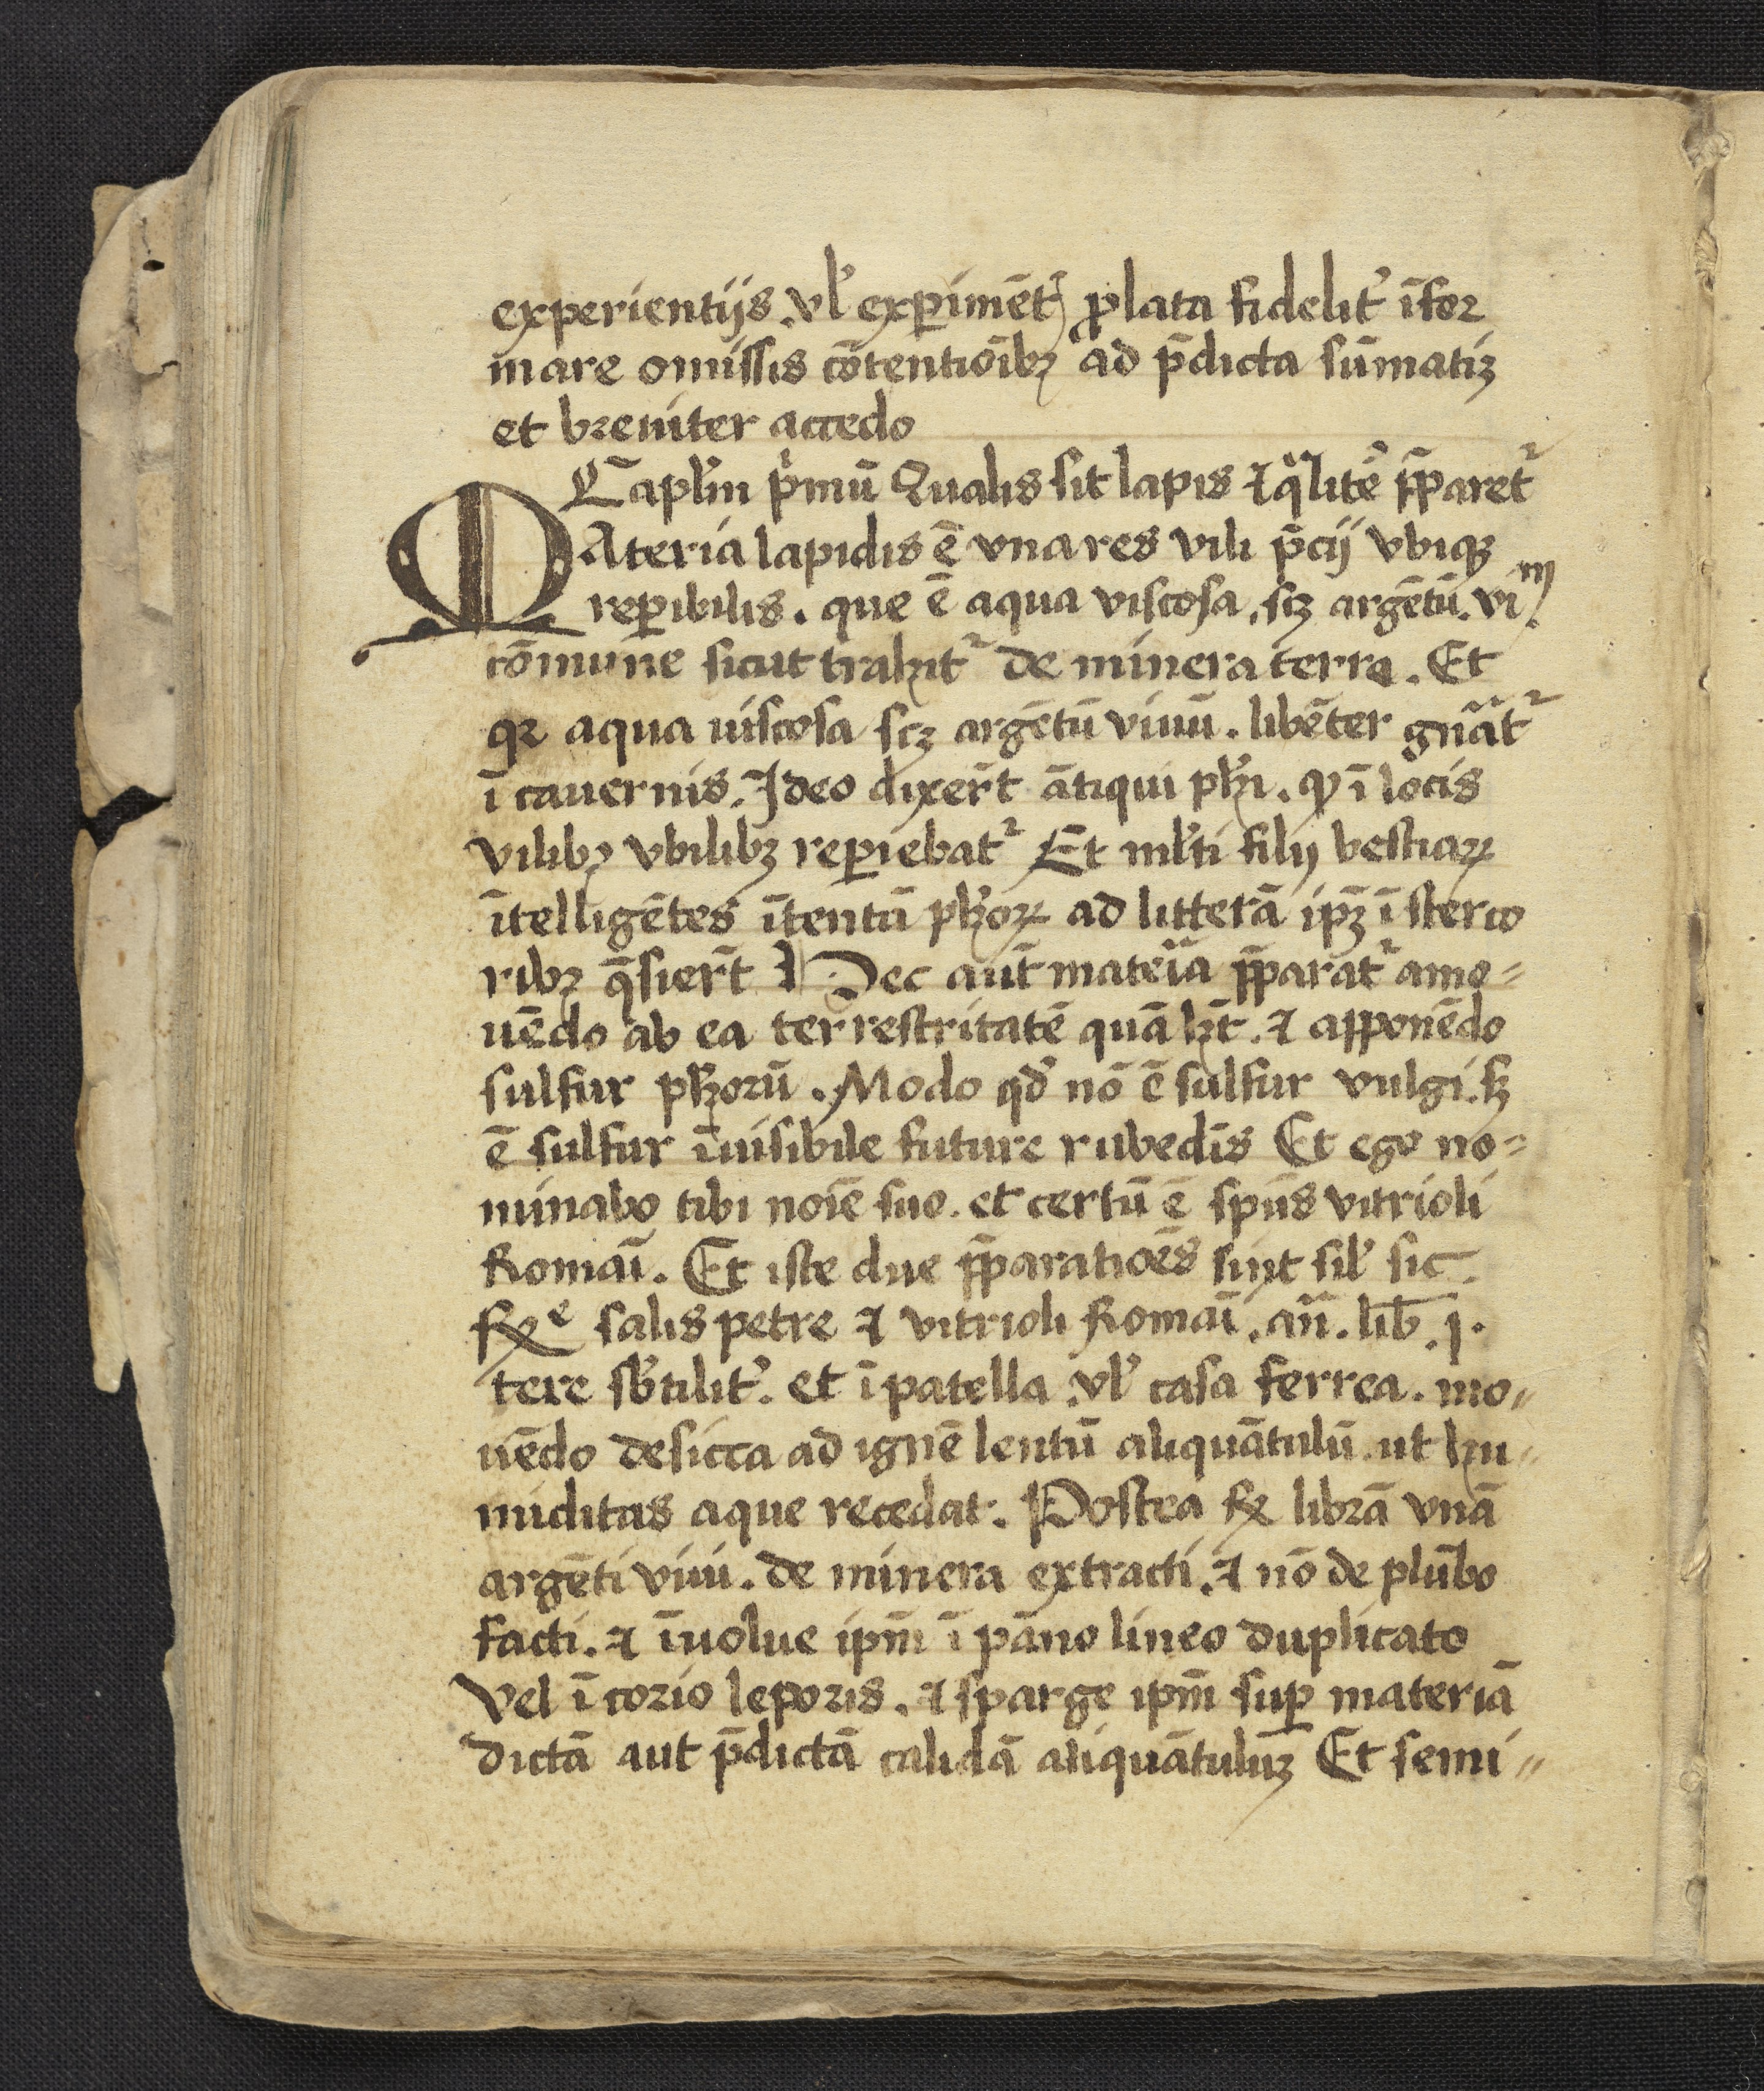 experientijs. vl' exp̲imēt̉ ꝓlata fidelit᷑ īfor
mare omissis cōtentiōibꝫ ad p̄dicta sūmatiꝫ
et breuiter accedo
Cap̄lm p̓mū Qualis sit lapis ⁊ q̓litẽ p̄paret᷑
MAteria lapidis ē vna res vili p̄cij vbiqꝫ
rep̲ibilis. que ē aqua viscosa, scꝫ argētū. viᵐ.
cōmune sicut trahit᷑ de minera terre. Et
qꝛ aqua uiscosa scꝫ argētū viuū. libēter gn̄āt᷑
ī cauernis. Ideo dixer̄t ātiqui ph̄i. ꝙ ī locis
vilibꝫ vbilibꝫ rep̲iebat᷑ Et ml̓ti filij bestiaꝝ
ītelligētes ītentū ph̄oꝝ ad litterā ip̄ꝫ ī sterco
ribꝫ q̄sier̄t ⁊ Hec aūt mate͛iā p̄parat᷑ amo-
uēdo ab ea terrestritatē quā hꝫt. ⁊ apponēdo
sulfur ph̄orū. Modo qd̓ nō ē sulfur vulgi. sꝫ
ē sulfur īuisibile future rubedīs Et ego no-
minabo tibi noīe suo. et certū ē spūs vitrioli
Romāī. Et iste due p̄paratiōēs sūt sil̓ sic.
℞ᵉ salis petre ⁊ vitrioli Romāī. an̄. lib̄. j.
tere sb̓tilit᷑. et ī patella vl̓ casa ferrea. mo-
uēdo desicca ad ignē lentū aliquātulū. ut hu-
miditas aque recedat. Postea ℞ librā vnā
argēti viui. de minera extracti. ⁊ nō de plūbo
facti. ⁊ īuolue ip̄m ī pāno lineo duplicato
Vel ī corio leporis. ⁊ sparge ip̄m sup̲ materiā
dictā aut p̄dictā calidā aliquātuluꝫ Et semi-